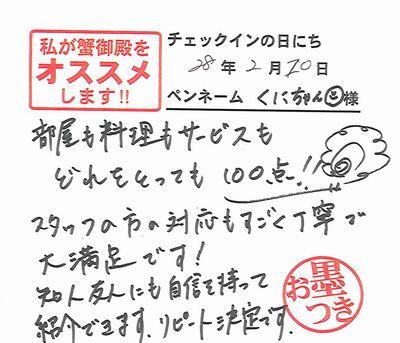 私が蟹御殿を
オススメ
します!!
チェックインの日にち
28年2月20日
ペンネーム くにちゃん様
部屋も料理もサービスも
どれをとっても 100点!!
スタッフの方の対応もすごく丁寧で
大満足です!
知人友人にも自信を持って
紹介できます。リピート決定です。
お墨つき